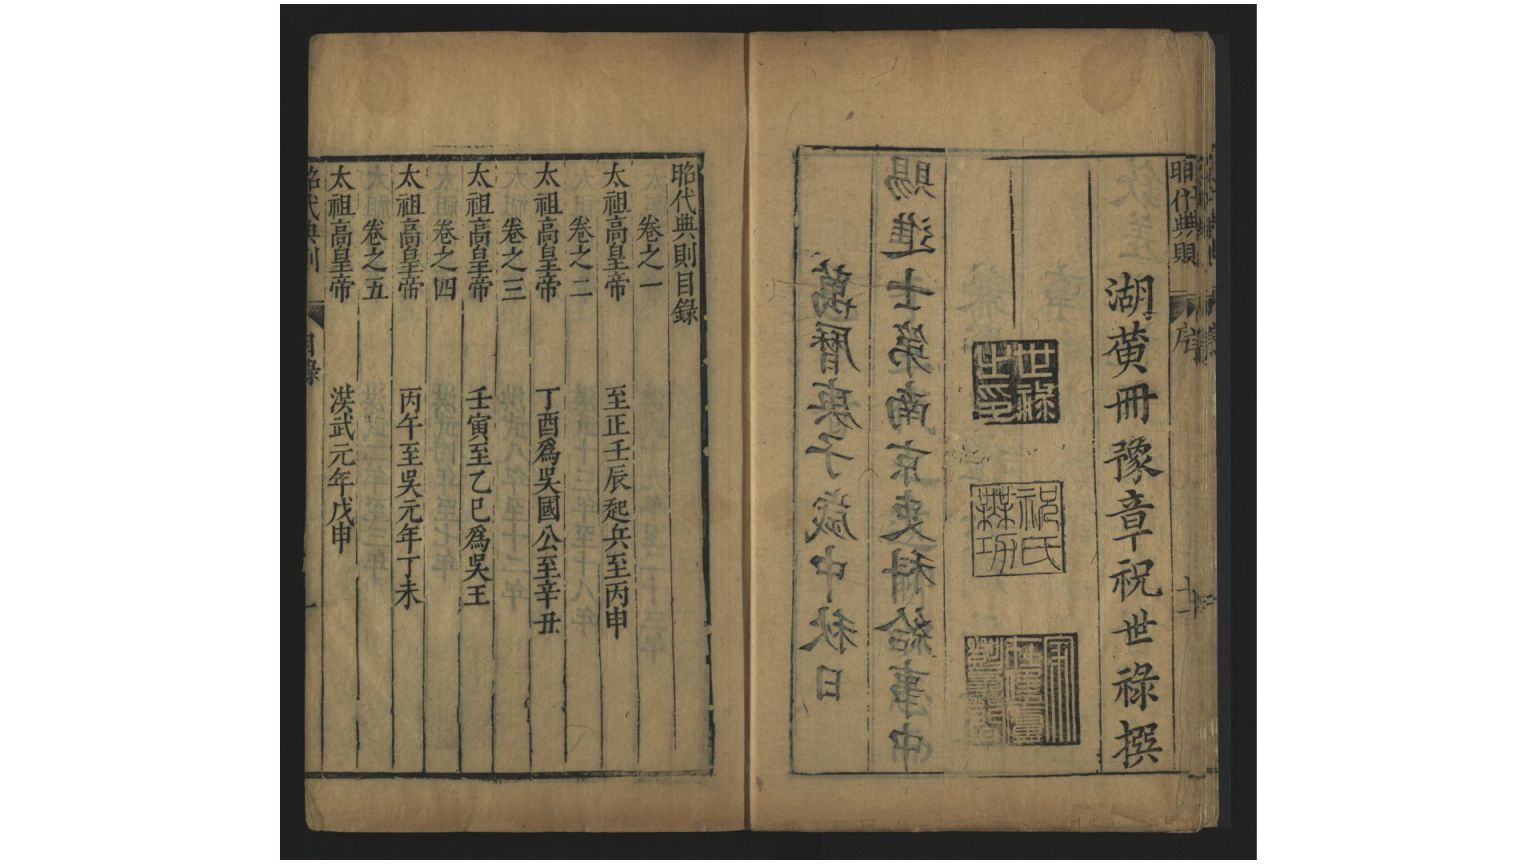 昭代典則 序
湖黃冊豫章祝世祿撰
世祿之印
祝氏無功
賜進士第南京吏科給事中
萬曆庚子歲中秋日
昭代典則目錄
卷之一
太祖高皇帝 至正壬辰起兵至丙申
卷之二
太祖高皇帝 丁酉爲吳國公至辛丑
卷之三
太祖高皇帝 壬寅至乙巳爲吳王
卷之四
太祖高皇帝 丙午至吳元年丁未
卷之五
太祖高皇帝 洪武元年戊申
昭代典則 目錄 一